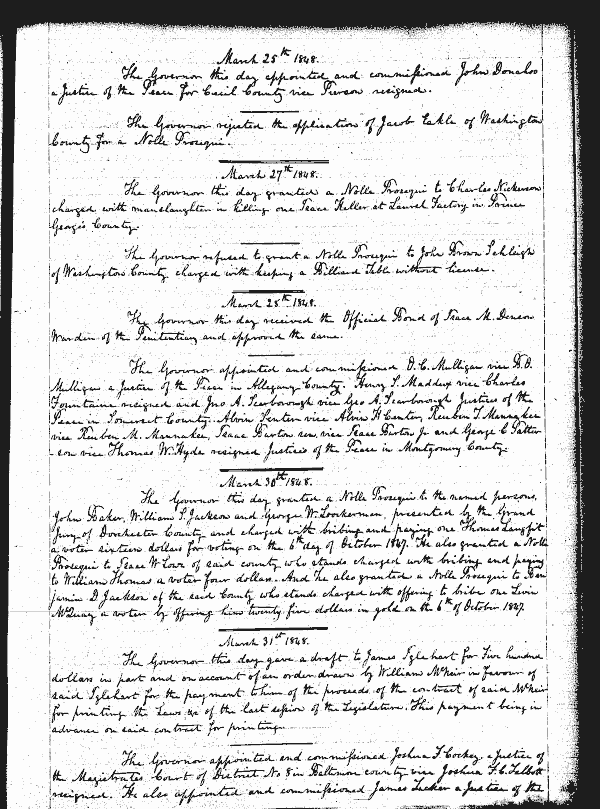 March 25th 1848.
The Governor this day appointed and commissioned John Donahoo
a Justice of the Peace for Cecil County vice Pierson resigned.
The Governor rejected the application of Jacob Eakle of Washington
County for a Nolle Prosequi.
March 27th 1848.
The Governor this day granted a Nolle Prosequi to Charles Nickerson
charged with manslaughter in killing one Isaac Keller at Laurel Factory in Prince
George's County.
The Governor refused to grant a Nolle Prosequi to John Brown Schleigh
of Washington County charged with keeping a Billiard Table without license.
March 28th 1848.
The Governor this day received the Official Bond of Isaac M. Denson
Warden of the Penitentiary and approved the same.
The Governor appointed and commissioned O. C. Mulligan vice
Mulligan a Justice of the Peace in Allegany County. Henry S. Maddux vice Charles
Fountaine resigned and Jno A. Scarborough vice Geo A. Scarborough Justices of the
Peace in Somerset County. Alvin Senter vice Alvin H Canter, Reuben T. Mannakee
vice Reuben M. Mannakee, Isaac Burton sen. vice Isaac Burton Jr and George C Patter
-son vice Thomas W. Hyde resigned Justices of the Peace in Montgomery County.
March 30th 1848.
The Governor this day granted a Nolle Prosequi to the named persons,
John Baker, William S. Jackson and George W. Lockerman, presented by the Grand
Jury of Dorchester County and charged with bribing and paying one Thomas Langfit
a voter sixteen dollars for voting on the 6th day of October 1847. He also granted a Nolle
Prosequi to Isaac W Lowe of said county who stands charged with bribing and paying
to William Thomas a voter four dollars. And he also granted a Nolle Prosequi to Ben
jamin D Jackson of the said County who stands charged with offering to bribe one Levin
McQuay a voter by offering him twenty five dollars in gold on the 6th of October 1847.
March 31st 1848.
The Governor this day gave a draft to James Iglehart for Five hundred
dollars in part and on account of an order drawn by William McNeir in favour of
said Iglehart for the payment to him of the proceeds of the contract of said McNeir
for printing the Laws &c of the last session of the Legislature. This payment being in
advance on said contract for printing.
The Governor appointed and commissioned Joshua F Cockey a Justice of
the Magistrates Court of District No. 8 in Baltimore county vice Joshua F. C. Talbott
resigned. He also appointed and commissioned James Tucker a Justice of the